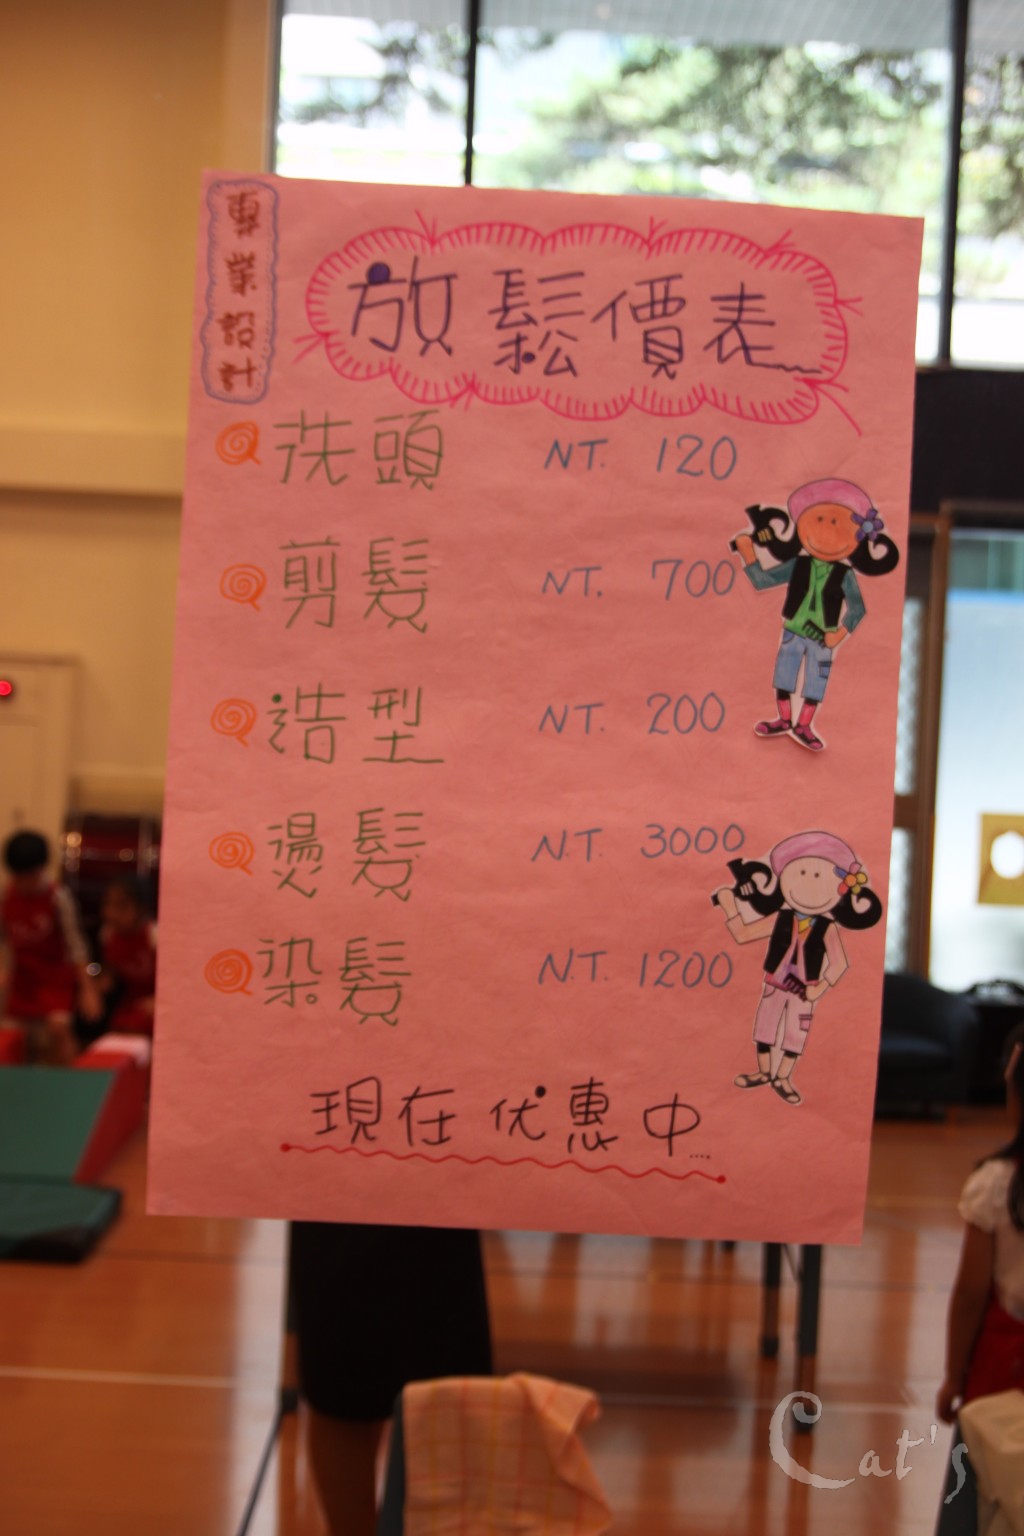 專業設計
放鬆價表
洗頭 NT. 120
剪髮 NT. 700
造型 NT. 200
燙髮 N.T. 3000
染髮 N.T. 1200
現在優惠中....
Cat's